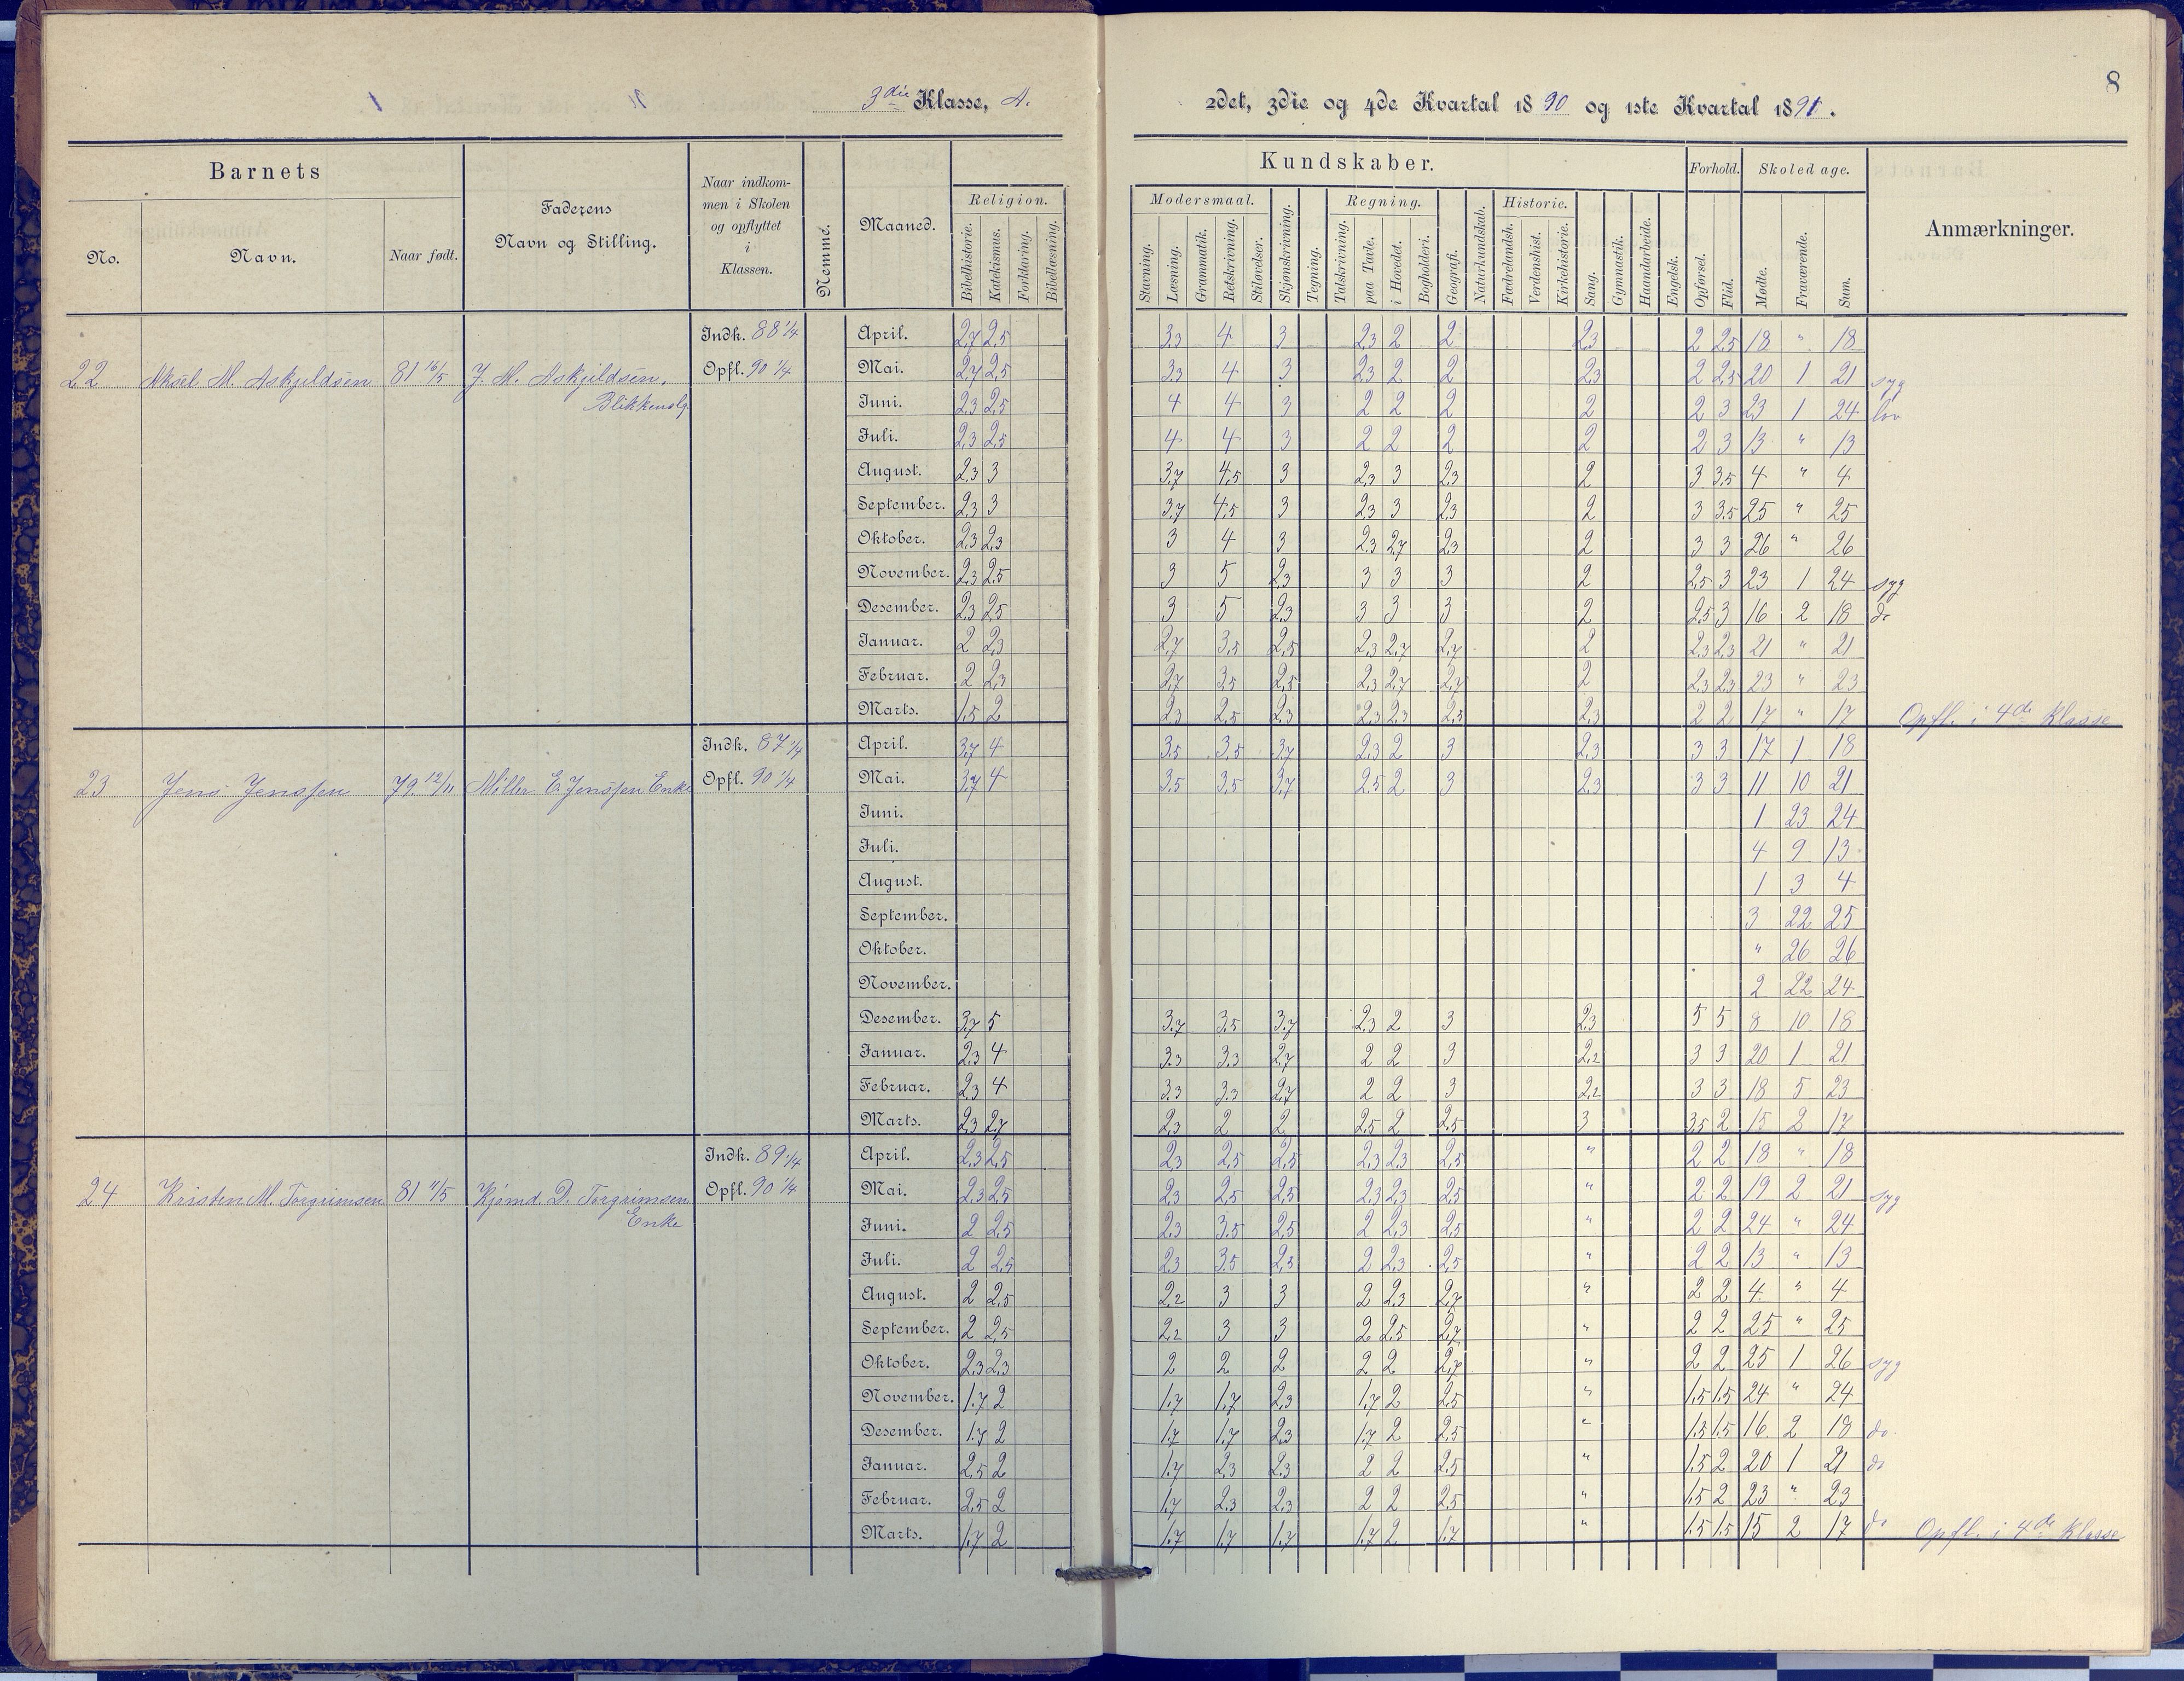 8
3die Klasse, A.
2det, 3die og 4de Kvartal 1890 og 1ste Kvartal 1891.
Barnets
No. Navn. Naar født.
Faderens Navn og Stilling.
Naar indkommen i Skolen og opflyttet i Klassen.
Nemme.
Maaned.
Kundskaber.
Religion. Bibelhistorie. Katekismus. Forklaring. Bibellæsning.
Modersmaal. Stavning. Læsning. Grammatik. Retskrivning. Stiløvelser.
Skjønskrivning. Tegning.
Regning. Talskrivning. paa Tavle. i Hovedet.
Bogholderi. Geografi. Naturkundskab.
Historie. Fædrelandsh. Verdenshist. Kirkehistorie.
Sang. Gymnastik. Haandarbeide. Engelsk.
Forhold. Opførsel. Flid.
Skoledage. Mødte. Fraværende. Sum.
Anmærkninger.
22 Aksel M. Askjeldsen 81 16/5 J. M. Askjeldsen, Blikkenslg.
Indk. 88 1/4
Opfl. 90 1/4
April. 2,7 2,5 3,3 4 3 2,3 2 2 2,3 2 2,5 18 " 18
Mai. 2,7 2,5 3,3 4 3 2,3 2 2 2,3 2 2,5 20 1 21 syg
Juni. 2,3 2,5 4 4 3 2 2 2 2 2 3 23 1 24 lov
Juli. 2,3 2,5 4 4 3 2 2 2 2 2 3 13 " 13
August. 2,3 3 3,7 4,5 3 2,3 3 2,3 2 3 3,5 4 " 4
September. 2,3 3 3,7 4,5 3 2,3 3 2,3 2 3 3,5 25 " 25
Oktober. 2,3 2,3 3 4 3 2,3 2,7 2,3 2 3 3 26 " 26
November. 2,3 2,5 3 5 2,3 3 3 3 2 2,5 3 23 1 24 syg
Desember. 2,3 2,5 3 5 2,3 3 3 3 2 2,5 3 16 2 18 do
Januar. 2 2,3 2,7 3,5 2,5 2,3 2,7 2,7 2 2,3 2,3 21 " 21
Februar. 2 2,3 2,7 3,5 2,5 2,3 2,7 2,7 2 2,3 2,3 23 " 23
Marts. 1,5 2 2,3 2,5 2,3 2,3 2,3 2,5 2,3 2 2 17 " 17 Opfl. i 4de Klasse
23 Jens Jenssen 79 12/11 Møller E. Jenssen Enke
Indk. 87 1/4
Opfl. 90 1/4
April. 3,7 4 3,5 3,5 3,7 2,3 2 3 2,3 3 3 17 1 18
Mai. 3,7 4 3,5 3,5 3,7 2,5 2 3 2,3 3 3 11 10 21
Juni. 1 23 24
Juli. 4 9 13
August. 1 3 4
September. 3 22 25
Oktober. " 26 26
November. 2 22 24
Desember. 3,7 5 3,7 3,5 3,7 2,3 2 3 2,3 5 5 8 10 18
Januar. 2,3 4 3,3 3,3 2,7 2 2 3 2,2 3 3 20 1 21
Februar. 2,3 4 3,3 3,3 2,7 2 2 3 2,2 3 3 18 5 23
Marts. 2,3 2,7 2,3 2 2 2,5 2 2,5 3 3,5 2 15 2 17
24 Kristen M. Torgrimsen 81 11/5 Kjømd. D. Torgrimsen Enke
Indk. 89 1/4
Opfl. 90 1/4
April. 2,3 2,5 2,3 2,5 2,5 2,3 2,3 2,5 " 2 2 18 " 18
Mai. 2,3 2,5 2,3 2,5 2,5 2,3 2,3 2,5 " 2 2 19 2 21 syg
Juni. 2 2,5 2,3 3,5 2,5 2 2,3 2,5 " 2 2 24 " 24
Juli. 2 2,5 2,3 3,5 2,5 2 2,3 2,5 " 2 2 13 " 13
August. 2 2,5 2,2 3 3 2 2,3 2,7 " 2 2 4 " 4
September. 2 2,5 2,2 3 3 2 2,5 2,7 " 2 2 25 " 25
Oktober. 2,3 2,3 2 2 2 2 2 2,7 " 2 2 25 1 26 syg
November. 1,7 2 1,7 1,7 2,3 1,7 2 2,5 " 1,5 1,5 24 " 24
Desember. 1,7 2 1,7 1,7 2,3 1,7 2 2,5 " 1,5 1,5 16 2 18 do
Januar. 2,5 2 1,7 2,3 2,3 2 2 2,5 " 1,5 2 20 1 21 do
Februar. 2,5 2 1,7 2,3 2,3 2 2 2,5 " 1,5 2 23 " 23
Marts. 1,7 2 1,7 1,7 1,7 1,7 2 1,7 " 1,5 1,5 15 2 17 do Opfl. i 4de Klasse